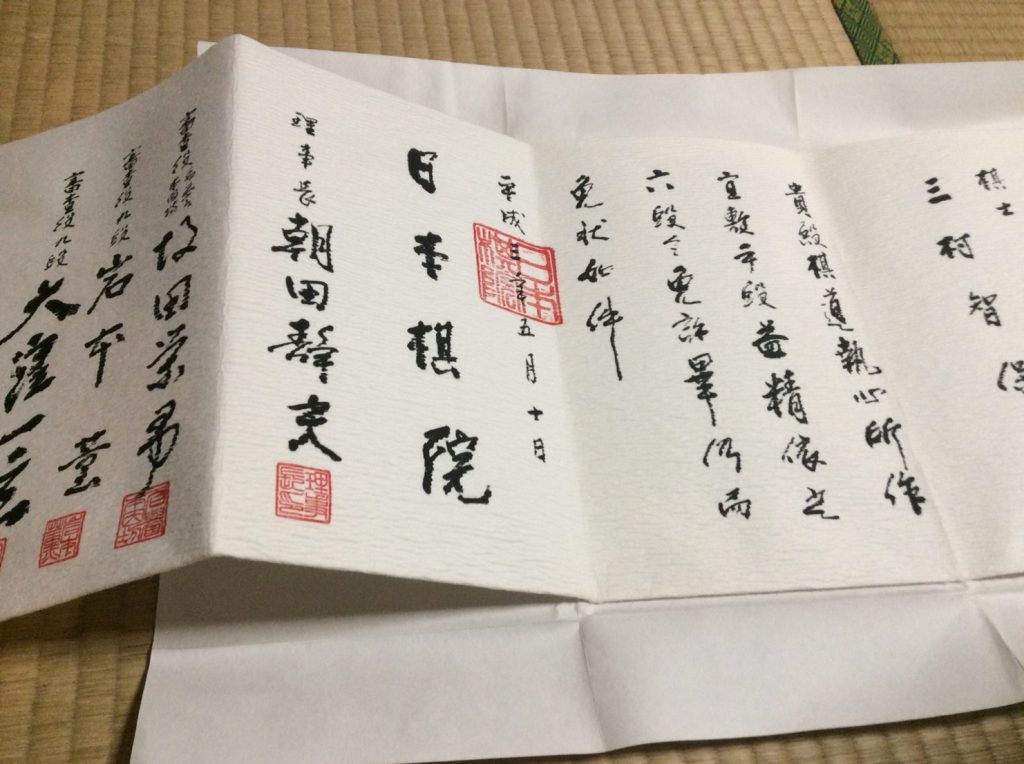 棋士
三村智保
貴殿棋道執心所作
宜敷手段益精依之
六段令免許畢仍而
免状如件
平成 年五月十日
日本棋院
理事長 朝田静夫
審査役 坂田栄男
審査役九段 岩本薫
審査役九段 大窪一玄
日本棋院
理事長之印